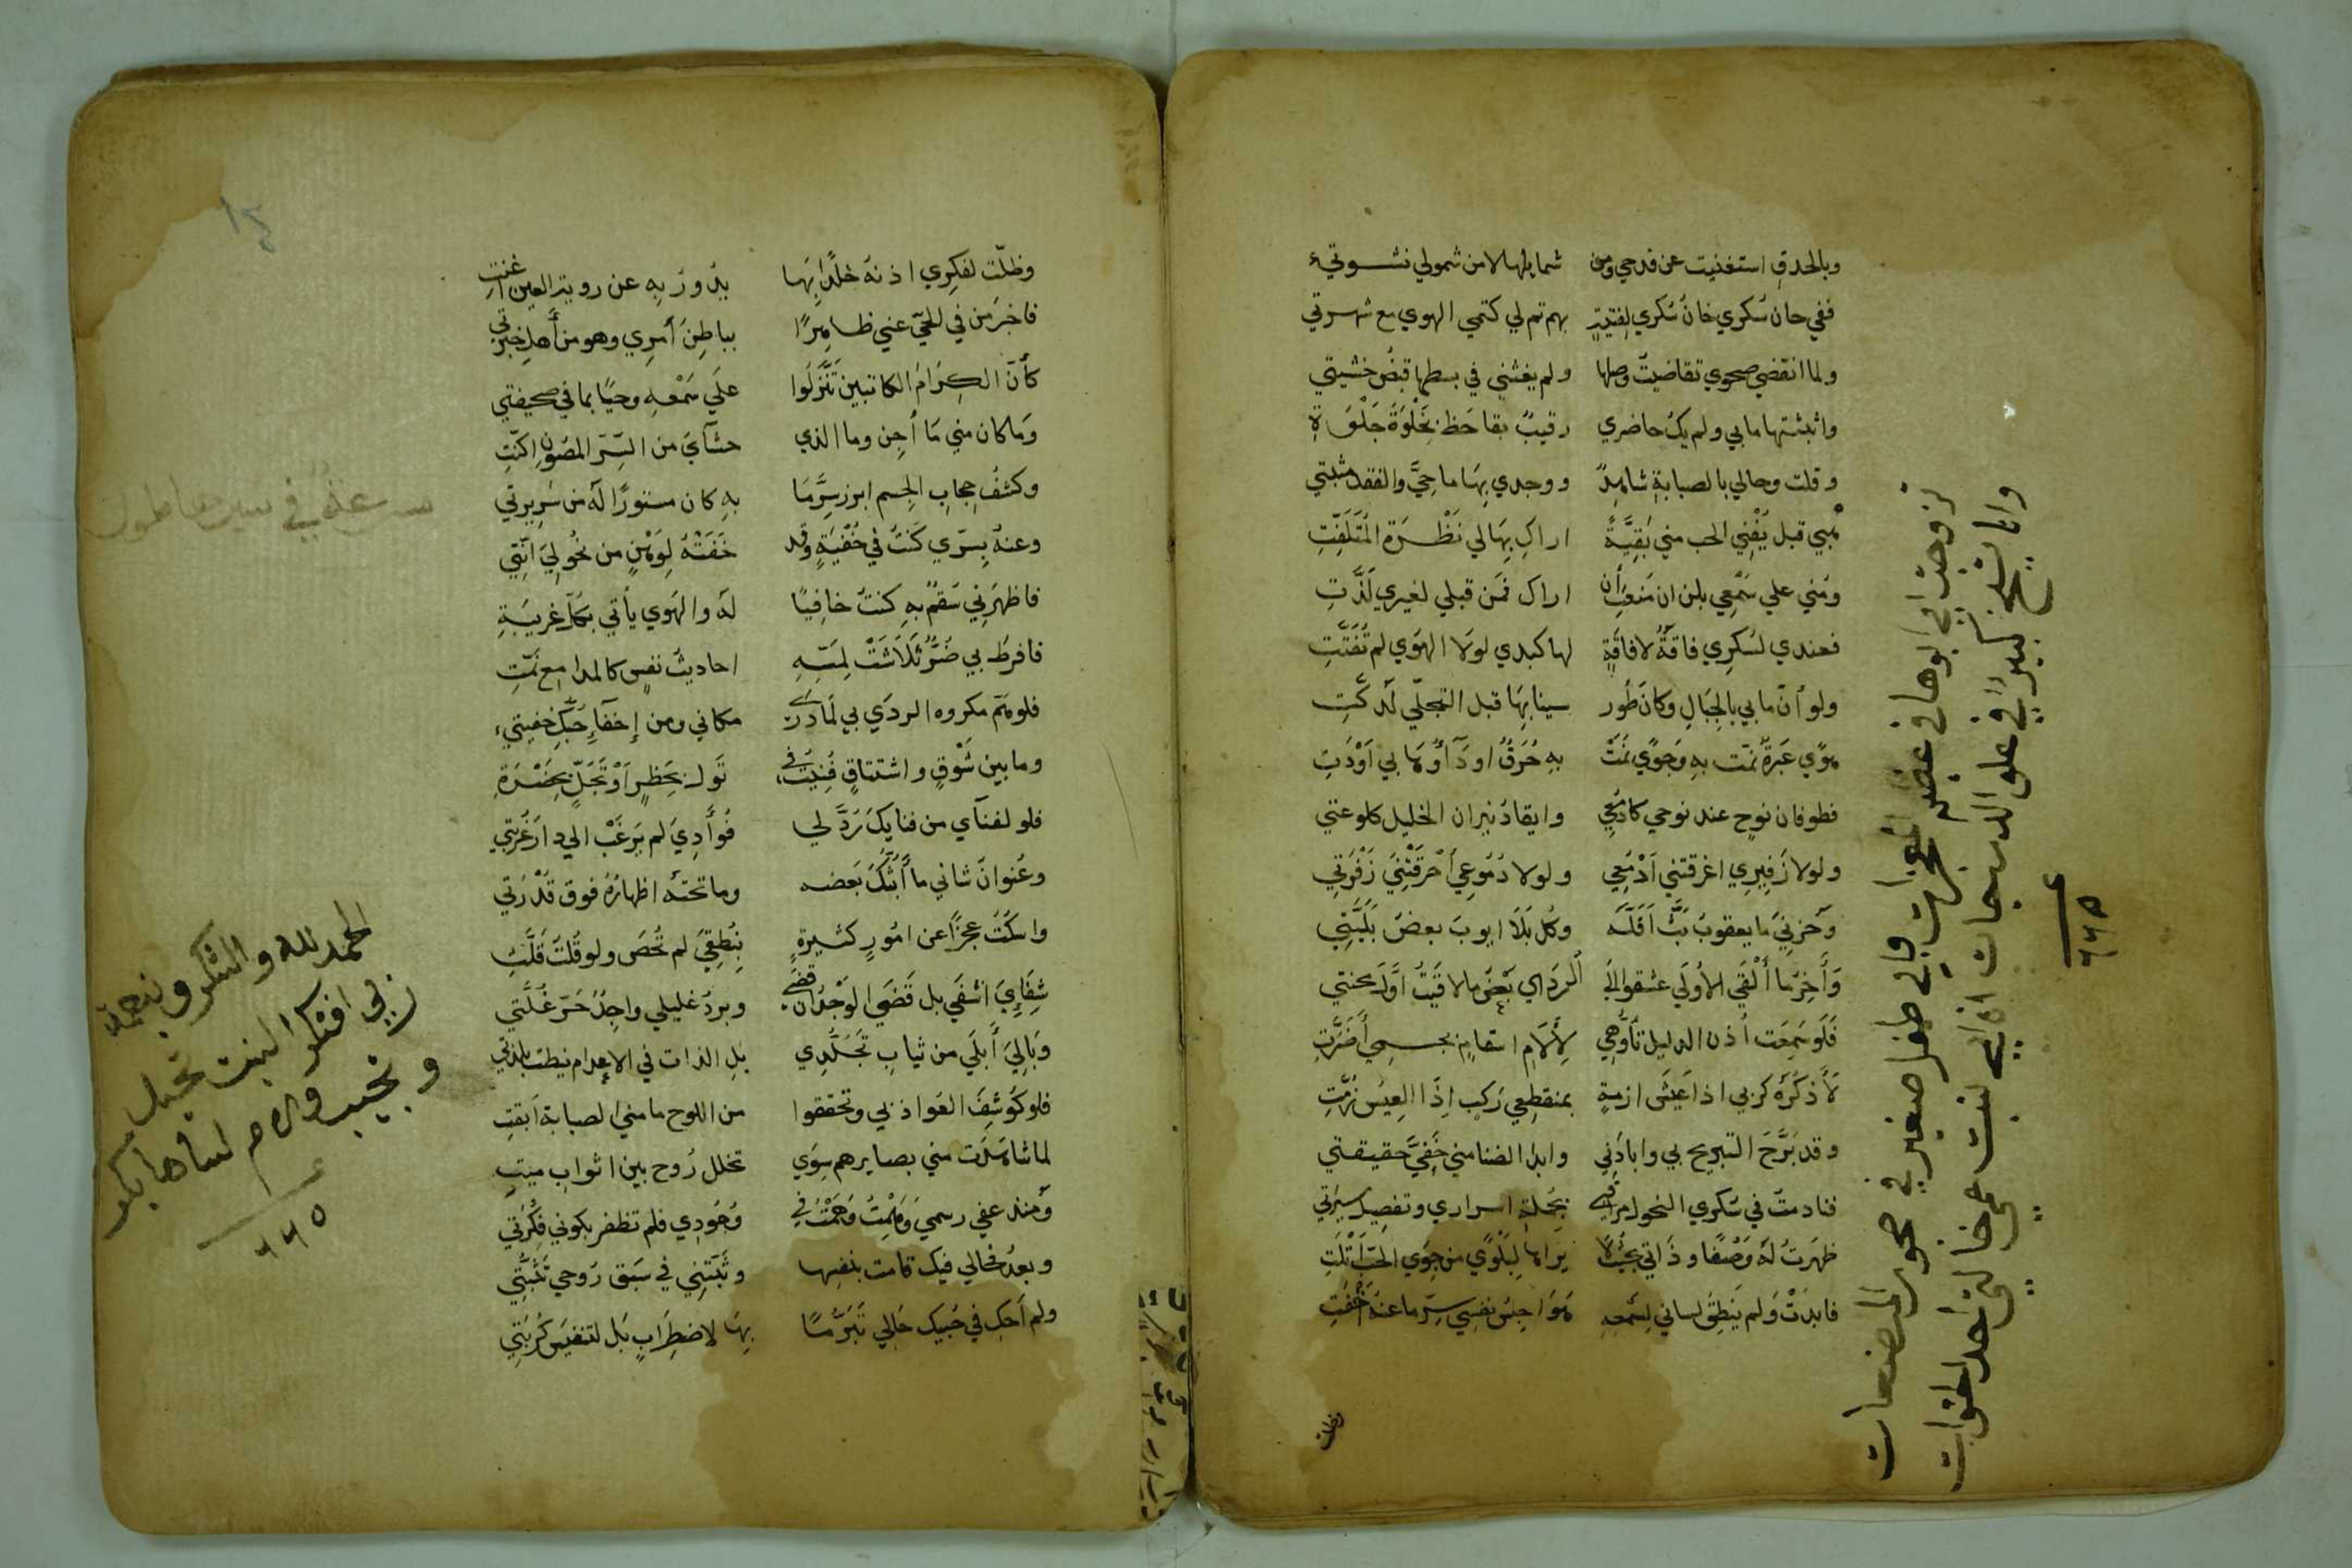 وبالحدقِ استغنيت عن قدحي ومن شمايلها لا من شمولي نشوتي
ففي حان سُكري حانَ شكري لفتيةٍ بهم تم لي كتمي الهوي مع شهرتي
ولما انقضي صحوي تقاضيتُ وصلها ولم يغشني في بسطها قبضُ خشيتي
وابثثتها ما بي ولم يكُ حاضري رقيبٌ بقا حَظٍ بخَلْوَةِ جَلْوَةِ
وقلت وحالي بالصبابةِ شاهدٌ ووجدي بِها ماحِيَّ والفقد مثبتي
هبي قبل يُفْنِي الحب مني بَقِيَّةً اراكِ بِها لي نَظْرَةَ المُتَلَفِّتِ
ومُني علي سَمْعِي بلن ان مَنعتِ أن اراكِ فمن قبلي لغيري لَذَّتِ
فعندي لسُكرِي فاقَةٌ لافاقَةٍ لها كبدي لولا الهَوي لم تُفَتَّتِ
ولو أنّ ما بي بالجِبَالِ وكانَ طُور سينا بِهَا قبل التجلّي لَدُكَّتِ
هوًي عَبرةٌ نَمَّت بهِ وجَوًي نَمَتْ بهِ حُرَقٌ ادوَآؤها بي اَوْدَتِ
فطوفان نوحٍ عند نوحي كادْمُعِي وايقادُ نيران الخليل كلوعتي
ولولا زَفِيرِي اغرقتني اَدْمُعِي ولولا دُمُوعِي اَحْرَقَتْنِيَ زَفْرَتِي
وَحَزنِيَ ما يعقوبُ بَثَّ اَقَلَّهُ وكُل بَلَا ايوبَ بعضُ بَلِيَّتِي
وَآخِرُ ما أَلْقَي الأُولَي عشقوا الَي الرَدَي بَعْضُ ما لاقَيتُ اوَّلَ محنتي
فَلَو سَمِعَت أذن الدليل تَأَوُّهِي لِآلَامِ اسقامٍ بجسمِي أضَرَّتِ
لَأَذكَرَهُ كربي اذا عَيْشَ ازمةٍ بمنقطِعِي رَكبٍ إذَا العِيسُ زُمَّتِ
وقد بَرَّحَ التبريح بي وابادَني وابدا الضنا مني خَفِيَّ حقيقتي
فنادمتُ في سُكري النحولَ مراقبي بجُملةِ اسراري وتفصيل سيرَتي
ظهرَتُ لهُ وَصْفًا وذَاتي بحيثُ لا يَراها لِبَلْوًي من جوَي الحُبِّ أبْلَتِ
فابدَتْ وَلم يَنطِقْ لساني لِسَمعهِ هَوَاجِسُ نفسِي سِرَّ ما عنهُ اَخْفَتِ
وظلت
تزوجت ابي ابوها في
وابي طفل صغير في حجور المرضعات
وانا شيخ كبير في علو الدرجات
اذ ابي لبنت عمي خالتي احد اخوات
٦٦٥
وظلّت لفكرِي اذنهُ خَلَدًا بِهَا يَدُورُ بِهِ عن روية العين اغنتِ
فاخبرَ من في الحَيّ عني ظاهِرًا بباطِنِ أمرِي وهو من أَهلِ خِبْرَتي
كأنّ الكِرَامَ الكاتبين تَنَزَّلُوا علَي سَمْعهِ وحيًا بما في صحيفتي
وَمَا كان مني مَا أجِن وما الذي حشآيَ من السِّرَ المَصُونِ اكنّتِ
وكشفُ حجابِ الجِسم ابرز سِرَّمَا بهِ كان مستورًا لَهُ من سَرِيرتي
وعنهُ بِسِرّي كنتُ في خُفْيَةٍ وقد خَفَتْهُ لِوَهْنٍ من نُحُولِيَ انّتِي
فاظهرَنِي سَقمٌ بهِ كنتُ خافِيًا لهُ والهَوي يأتي بكلّ غريبَةِ
فافرطَ بي ضُرٌّ تَلَاشَتْ لمَسّهِ احاديثُ نفسٍ كالمدامع نَمّتِ
فلو همَّ مكروه الردَي بي لَمَا دَرَي مكاني ومن إخفآءِ حُبِّكِ خفيتي
وما بين شَوْقٍ واشتياقٍ فَنِيْتُ في تَولٍ بحَظٍ اَوْ تَجَلٍّ بِحَضْرَةِ
فلو لفنآي من فنايكَ رُدَّ لي فُوأَدِيَ لم يَرغَبْ الي دار غُرْبَتي
وعُنوانُ شاني ما أَبُثُّكَ بَعضه وما تحتَهُ اظهارُهُ فوق قُدْرَتي
واسكُتُ عجزًا عن امُورٍ كثيرةٍ بِنُطقِيَ لم تُحصَ ولو قُلتُ قَلَّتِ
شِفَائِيَ اشفَي بل قَضَي الوَجْدُ ان قضَي وبردُ غليلي واجِدٌ حَرّ غُلَّتي
وَبَالِيَ أَبلَي من ثيابِ تَجَلُّدِي بل الذات في الاعدام نيطت بلذتي
فلو كُوشِفَ العَواذ بي وتحققوا من اللوح ما مني الصبابة اَبقَتِ
لما شاهَدَت مني بصايرهم سِوَي تخلل رُوح بين اثوابِ ميّتِ
ومنذ عفي رسمي وَهِمْتُ وَهَمْتُ في وُجُودِي فلم تظفر بكوني فِكْرَتي
وبعدُ فحالي فيك قامت بنفسِها وبَيّنتي في سَبق رُوحي بَنْيَتِي
ولم اَحكِ في حُبيك حَالي تَبَرُّمًا بِهَا لاضطِرَابٍ بَل لتنفيس كُربَتِي
الحمد لله والشكر
٦٦٥